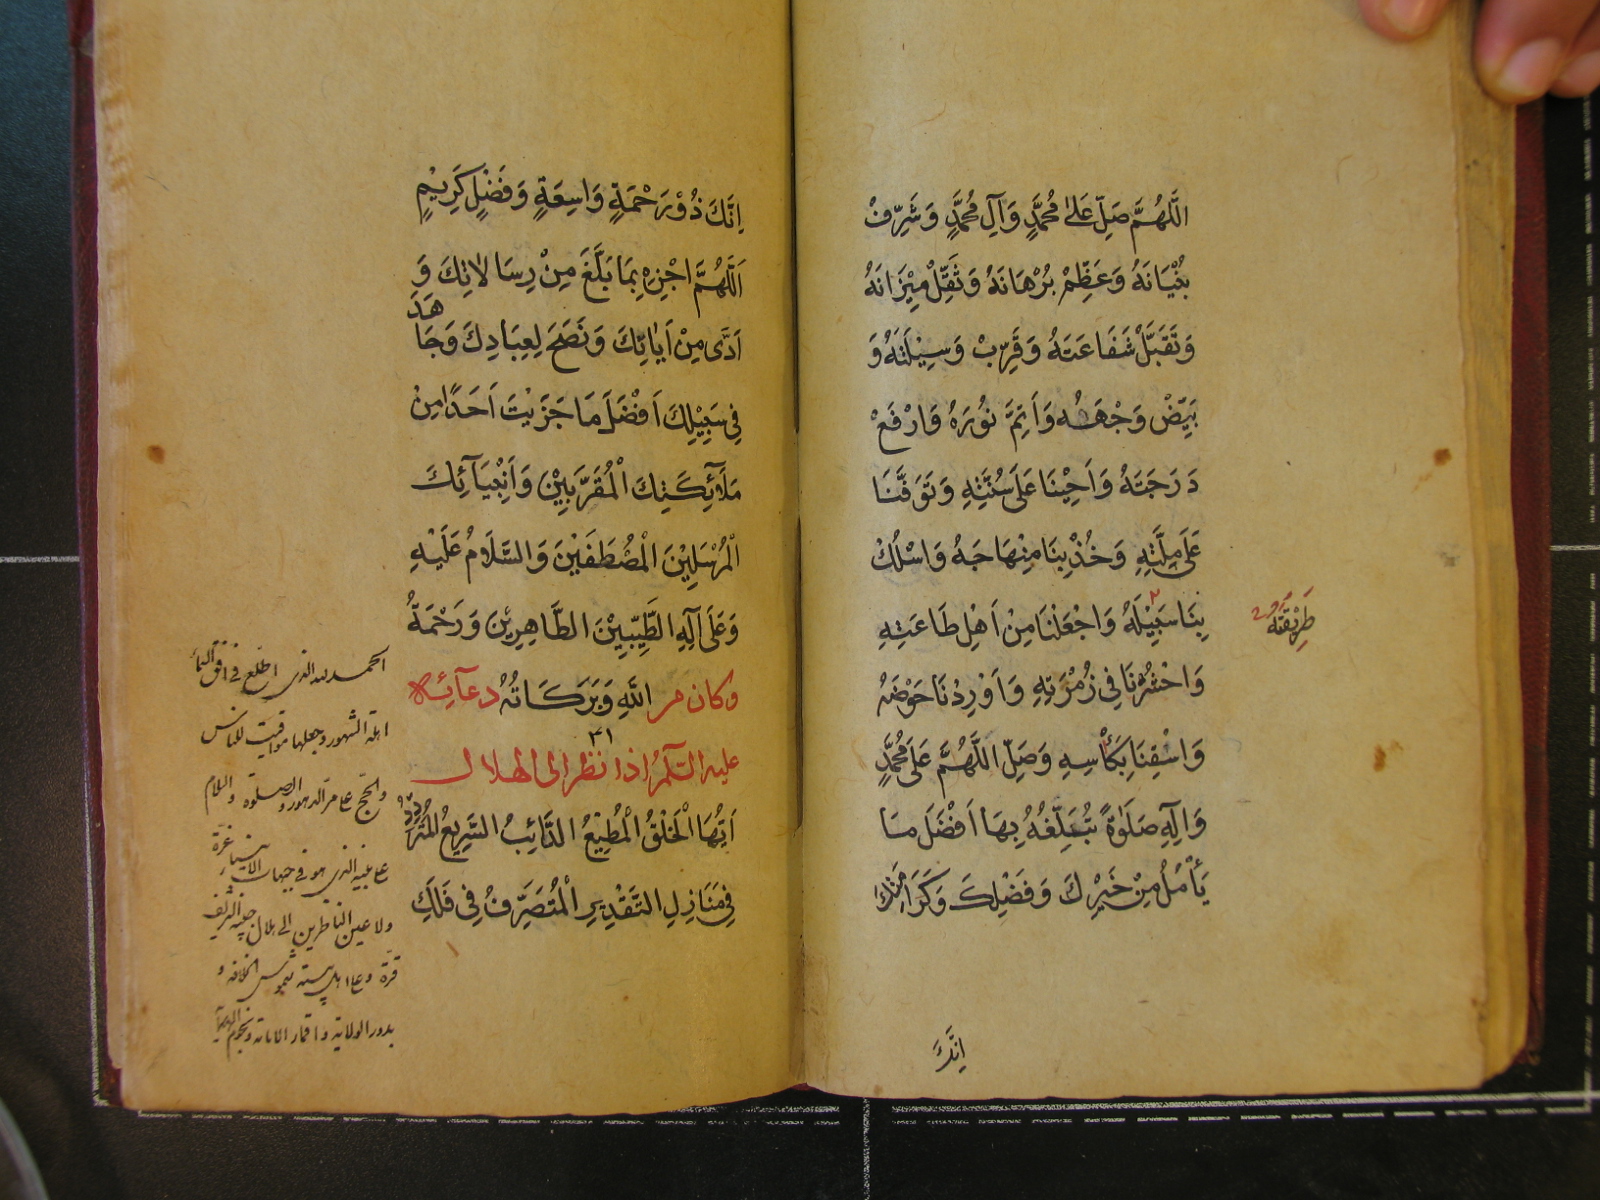 اللّٰهُمَّ صَلِّ عَلىٰ مُحَمَّدٍ وَآلِ مُحَمَّدٍ وَشَرِّفْ
بُنْيَانَهُ وَعَظِّمْ بُرْهَانَهُ وَثَقِّلْ مِيْزَانَهُ
وَتَقَبَّلْ شَفَاعَتَهُ وَقَرِّبْ وَسِيْلَتَهُ وَ
بَيِّضْ وَجْهَهُ وَاَتِمَّ نُوْرَهُ وَارْفَعْ
دَرَجَتَهُ وَاَحْيِنَا عَلَى سُنَّتِهِ وَتَوَفَّنَا
عَلَى مِلَّتِهِ وَخُذْ بِنَا مِنْهَاجَهُ وَاسْلُكْ
بِنَا سَبِيْلَهُ وَاجْعَلْنَا مِنْ اَهْلِ طَاعَتِهِ
طَرِيْقَتَهُ
وَاحْشُرْنَا فِي زُمْرَتِهِ وَاَوْرِدْنَا حَوْضَهُ
وَاسْقِنَا بِكَأْسِهِ وَصَلِّ اللّٰهُمَّ عَلَى مُحَمَّدٍ
وَاٰلِهِ صَلٰوةً تُبَلِّغُهُ بِهَا اَفْضَلَ مَا
يَأْمُلُ مِنْ خَيْرِكَ وَفَضْلِكَ وَكَرَامَتِكَ
اِنَّكَ
اِنَّكَ ذُوْ رَحْمَةٍ وَاسِعَةٍ وَفَضْلٍ كَرِيْمٍ
اَللّٰهُمَّ اجْزِهِ بِمَا بَلَّغَ مِنْ رِسَالَاتِكَ وَ
اَدّٰى مِنْ اٰيَاتِكَ وَنَصَحَ لِعِبَادِكَ وَجَاهَدَ
فِي سَبِيْلِكَ اَفْضَلَ مَا جَزَيْتَ اَحَدًا مِنْ
مَلَآئِكَتِكَ الْمُقَرَّبِيْنَ وَاَنْبِيَآئِكَ
الْمُرْسَلِيْنَ الْمُصْطَفَيْنَ وَالسَّلَامُ عَلَيْهِ
وَعَلَى آلِهِ الطَّيِّبِيْنَ الطَّاهِرِيْنَ وَرَحْمَةُ
اللّٰهِ وَبَرَكَاتُهُ وكان من دعآئه
٤١
عليه السّلام اذا نظر الى الهلال
اَيُّهَا الْخَلْقُ الْمُطِيْعُ الدَّائِبُ السَّرِيْعُ الْمُتَرَدِّدُ
فِي مَنَازِلِ التَّقْدِيْرِ الْمُتَصَرِّفُ فِي فَلَكِ
الحمد لله الذى اطلع فى افق السماء
اهلة الشهور وجعلها مواقيت للناس
والحج على مر الدهور والصلوة والسلام
على نبيه الذى هو فى جبهات الانبياء غرة
ولاعين الناظرين الى هلال الشريف
قرة وعلى اهل بيته شموس الخلافة و
بدور الولاية واقمار الامامة ونجوم الهداية